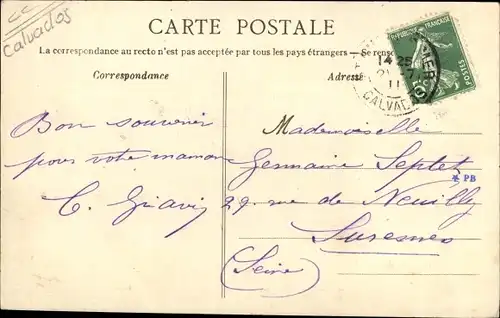 Calvados
CARTE POSTALE
La correspondance au recto n'est pas acceptée par tous les pays étrangers — Se rens
Correspondance
Adresse
RÉPUBLIQUE FRANÇAISE
POSTES
14 25
11
CALVADOS
Bon souvenir
pour votre maman
Mademoiselle
Germaine Septet
PB
29 rue de Neuilly
Suresnes
(Seine)